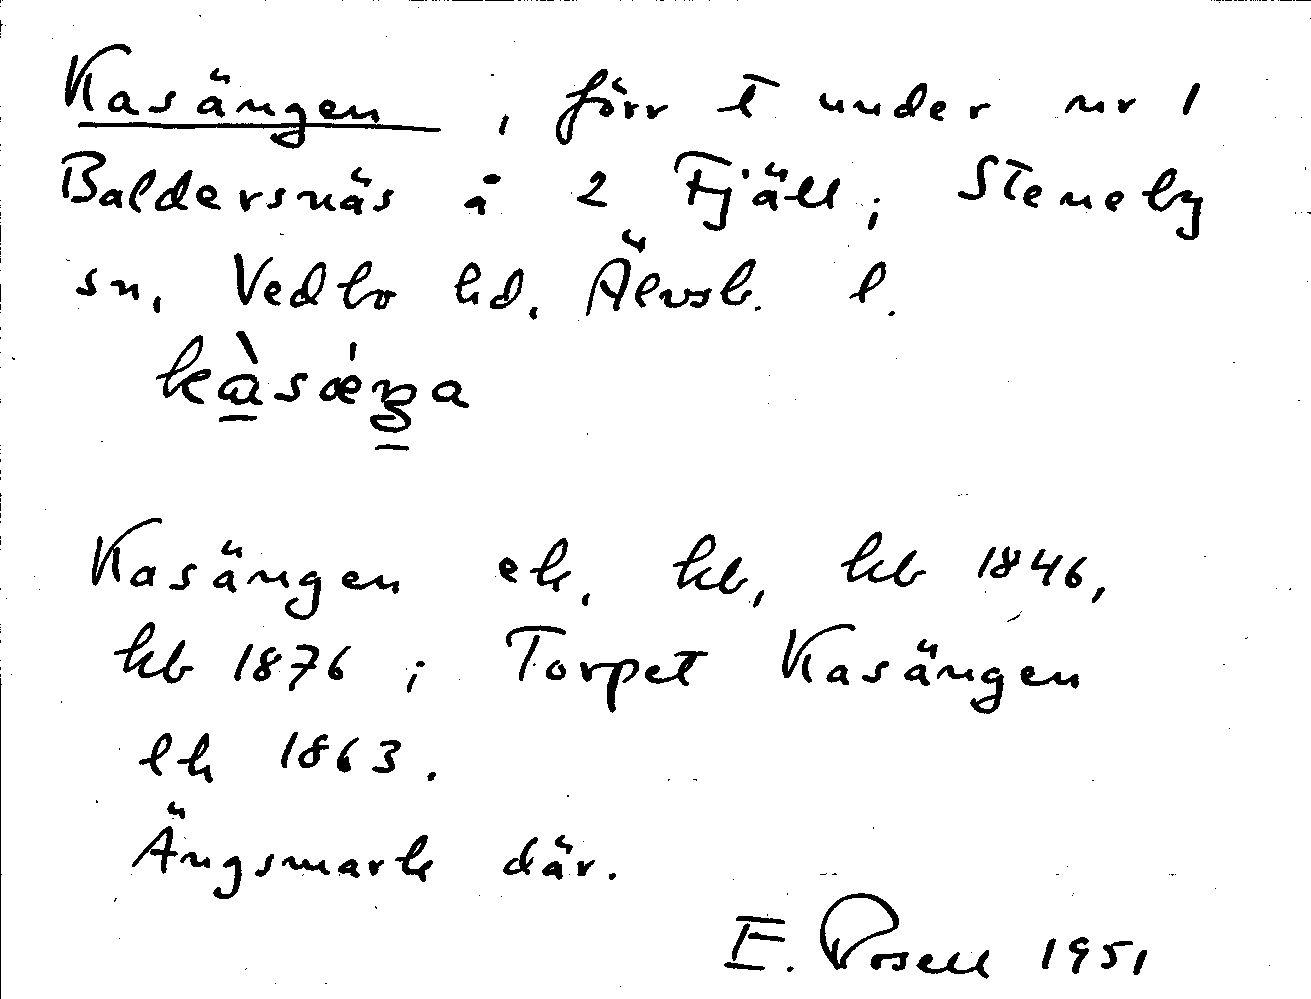 Kasängen, förr t under nr 1
Baldersnäs å 2 Fjäll; Steneby
sn, Vedbo hd. Älvsb. l.
Kasängen ek, kb, kb 1846,
kb 1876; Torpet Kasängen
ek 1863.
Ängsmark där.
E. Rosell 1951